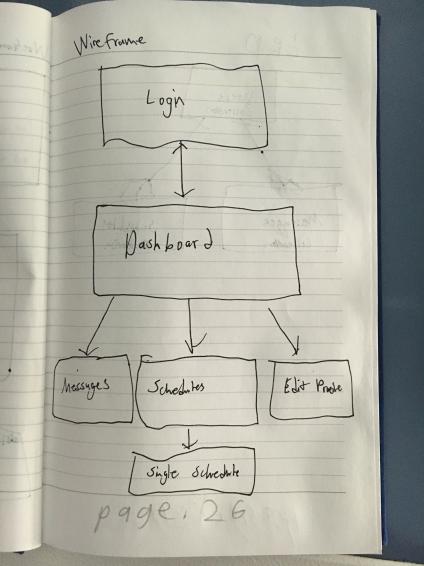 Wireframe
Login
Dashboard
Messages
Schedules
Edit
Single Schedule
page. 26